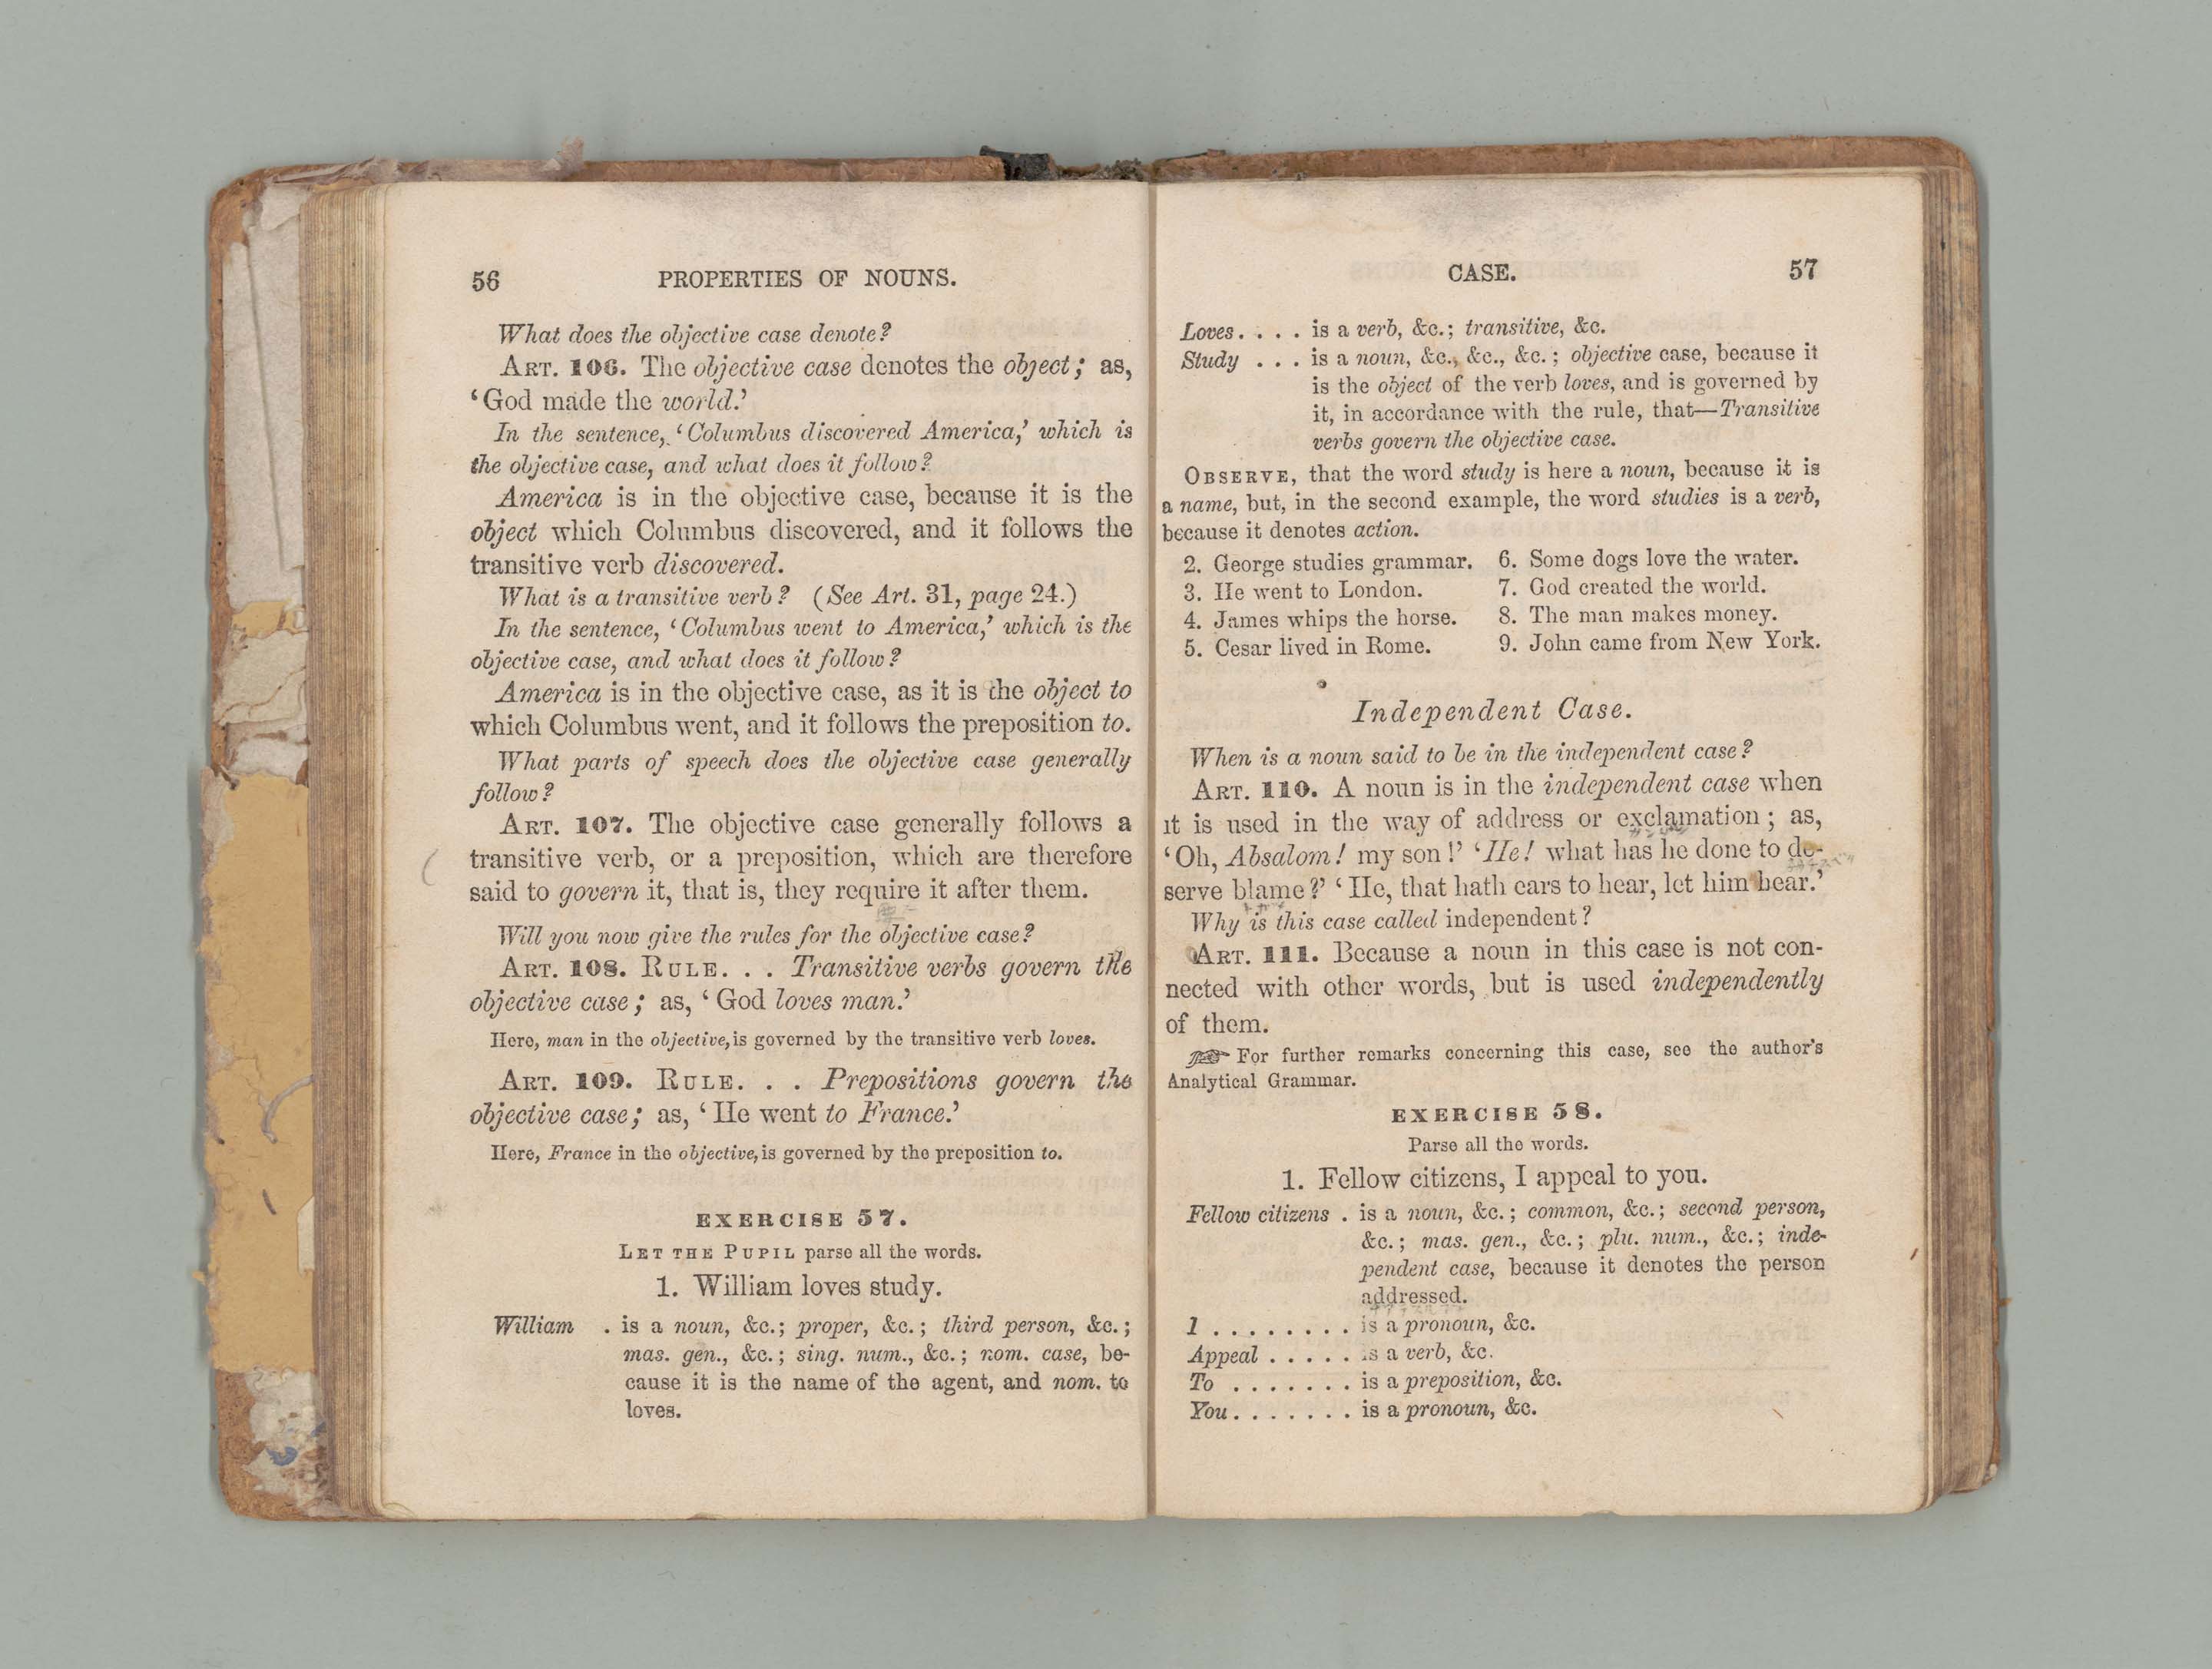 56 PROPERTIES OF NOUNS.
What does the objective case denote?
ART. 106. The objective case denotes the object; as,
‘God made the world.’
In the sentence, ‘Columbus discovered America,’ which is
the objective case, and what does it follow?
America is in the objective case, because it is the
object which Columbus discovered, and it follows the
transitive verb discovered.
What is a transitive verb? (See Art. 31, page 24.)
In the sentence, ‘Columbus went to America,’ which is the
objective case, and what does it follow?
America is in the objective case, as it is the object to
which Columbus went, and it follows the preposition to.
What parts of speech does the objective case generally
follow?
ART. 107. The objective case generally follows a
transitive verb, or a preposition, which are therefore
said to govern it, that is, they require it after them.
Will you now give the rules for the objective case?
ART. 108. RULE. . . Transitive verbs govern the
objective case; as, ‘God loves man.’
Here, man in the objective, is governed by the transitive verb loves.
ART. 109. RULE. . . Prepositions govern the
objective case; as, ‘He went to France.’
Here, France in the objective, is governed by the preposition to.
EXERCISE 57.
LET THE PUPIL parse all the words.
1. William loves study.
William . is a noun, &c.; proper, &c.; third person, &c.;
mas. gen., &c.; sing. num., &c.; nom. case, be-
cause it is the name of the agent, and nom. to
loves.
CASE. 57
Loves. . . . is a verb, &c.; transitive, &c.
Study . . . is a noun, &c., &c., &c.; objective case, because it
is the object of the verb loves, and is governed by
it, in accordance with the rule, that—Transitive
verbs govern the objective case.
OBSERVE, that the word study is here a noun, because it is
a name, but, in the second example, the word studies is a verb,
because it denotes action.
2. George studies grammar. 6. Some dogs love the water.
3. He went to London. 7. God created the world.
4. James whips the horse. 8. The man makes money.
5. Cesar lived in Rome. 9. John came from New York.
Independent Case.
When is a noun said to be in the independent case?
ART. 110. A noun is in the independent case when
it is used in the way of address or exclamation; as,
‘Oh, Absalom! my son!’ ‘He! what has he done to de-
serve blame?’ ‘He, that hath ears to hear, let him hear.’
Why is this case called independent?
ART. 111. Because a noun in this case is not con-
nected with other words, but is used independently
of them.
☞ For further remarks concerning this case, see the author's
Analytical Grammar.
EXERCISE 58.
Parse all the words.
1. Fellow citizens, I appeal to you.
Fellow citizens . is a noun, &c.; common, &c.; second person,
&c.; mas. gen., &c.; plu. num., &c.; inde-
pendent case, because it denotes the person
addressed.
I . . . . . . . . is a pronoun, &c.
Appeal . . . . . is a verb, &c.
To . . . . . . . is a preposition, &c.
You . . . . . . . is a pronoun, &c.